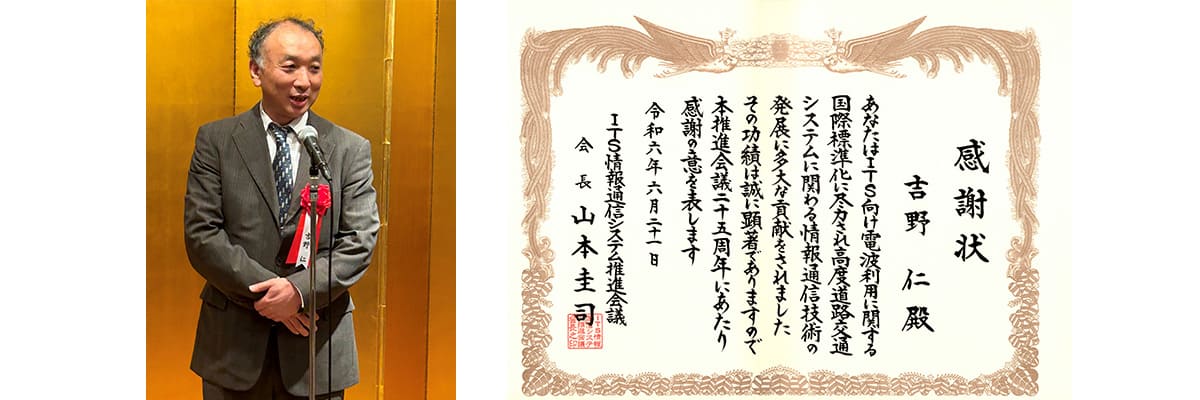 吉野 仁
感謝状
吉野 仁 殿
あなたはITS向け電波利用に関する
国際標準化に尽力され高度道路交通
システムに関わる情報通信技術の
発展に多大な貢献をされました
その功績は誠に顕著でありますので
本推進会議二十五周年にあたり
感謝の意を表します
令和六年六月二十一日
ITS情報通信システム推進会議
会長 山本圭司